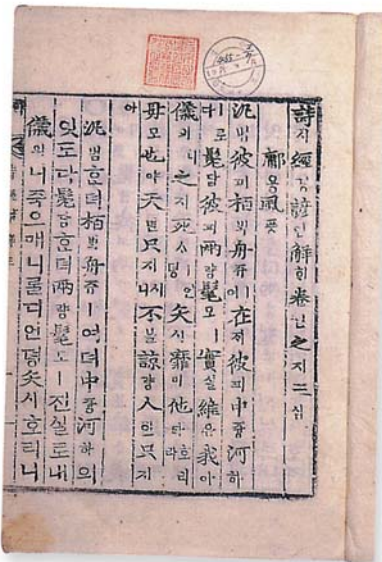 詩시經경諺언解ᄒᆡ卷권之지三삼
鄘용風풍
汎범彼피栢ᄇᆡᆨ舟쥬ㅣ여在ᄌᆡ彼피中듕河하
ㅣ로다髧담彼피兩량髦모ㅣ實실維유我아
儀의니之지死ᄉᆞㅣ언뎡矢시靡미他타호리라
母모也야天텬只지시니不블諒량人인只지
아
汎범ᄒᆞᆫ뎌栢ᄇᆡᆨ舟쥬ㅣ여뎌中듕河하의
잇도다髧담ᄒᆞᆫ뎌兩량髦모ㅣ진실로내
儀의니죽으매니를디언뎡矢시호리니